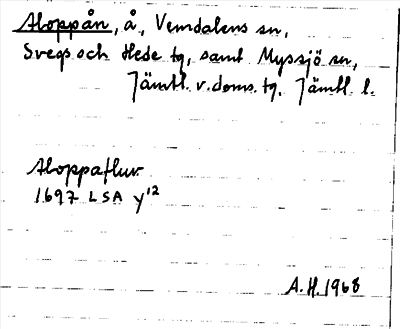 Aloppån, å, Vemdalens sn,
Svegs och Hede tg, samt Myssjö sn,
Jämtl. v. doms. tg, Jämtl. l.
Aloppafluv
1697 LSA y¹²
A.H. 1968